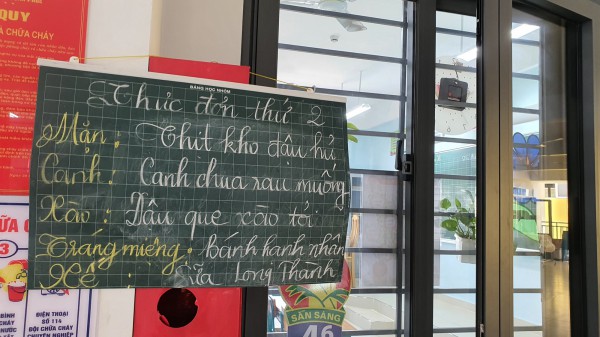 QUY
A CHỮA CHÁY
BẢNG HỌC NHÓM
Thực đơn thứ 2
Mặn: Thịt kho đậu hủ
Canh: Canh chua rau muống
Xào: Đậu que xào tỏi
Tráng miệng: bánh hạnh nhân
Xế: Sữa Long Thành
ỮA C
3
ĐIỆN THOẠI
SỐ 114
ĐỘI CHỮA CHÁY
CHUYÊN NGHIỆP
BÌNH
CHÁY
NƯỚC
SẴN SÀNG
46